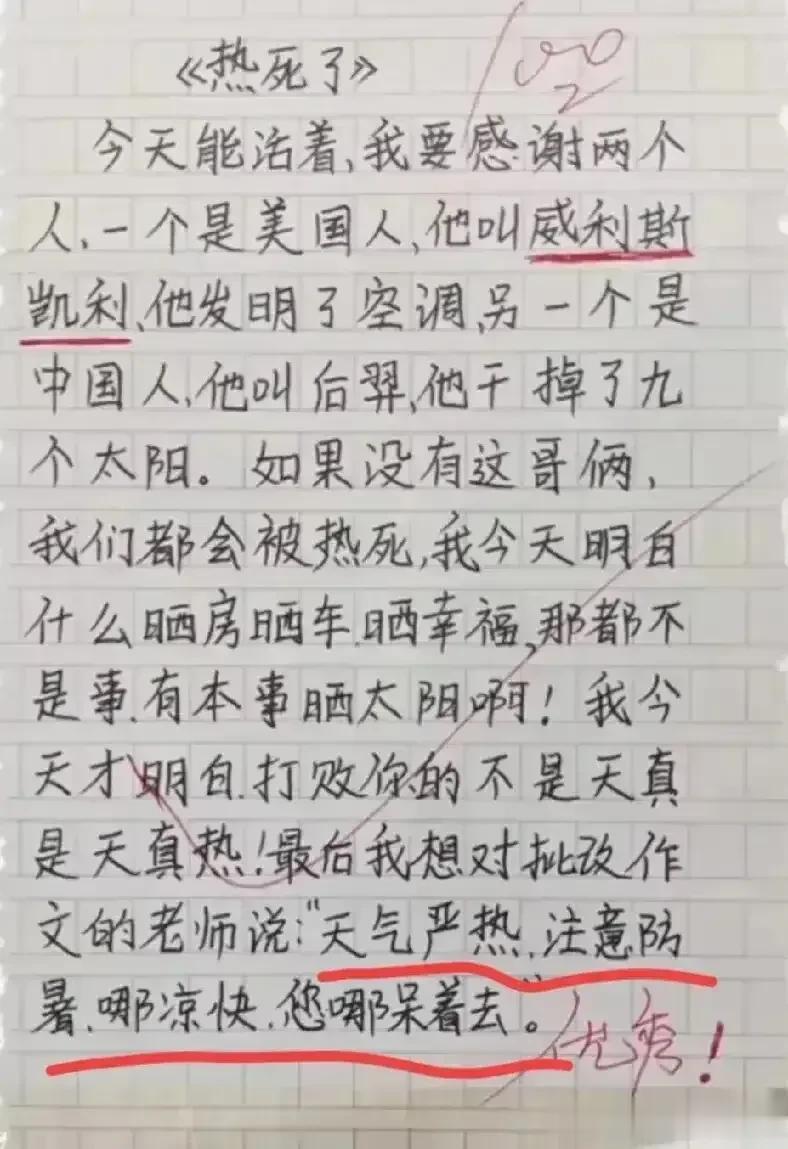 《热死了》
100
今天能活着,我要感谢两个
人、一个是美国人,他叫威利斯
凯利、他发明了空调,另一个是
中国人,他叫后羿,他干掉了九
个太阳。如果没有这哥俩,
我们都会被热死,我今天明白
什么晒房晒车.晒幸福,那都不
是事.有本事晒太阳啊!我今
天才明白.打败你的不是天真
是天真热!最后我想对批改作
文的老师说:"天气严热.注意防
暑.哪凉快.您哪呆着去"。
优秀!